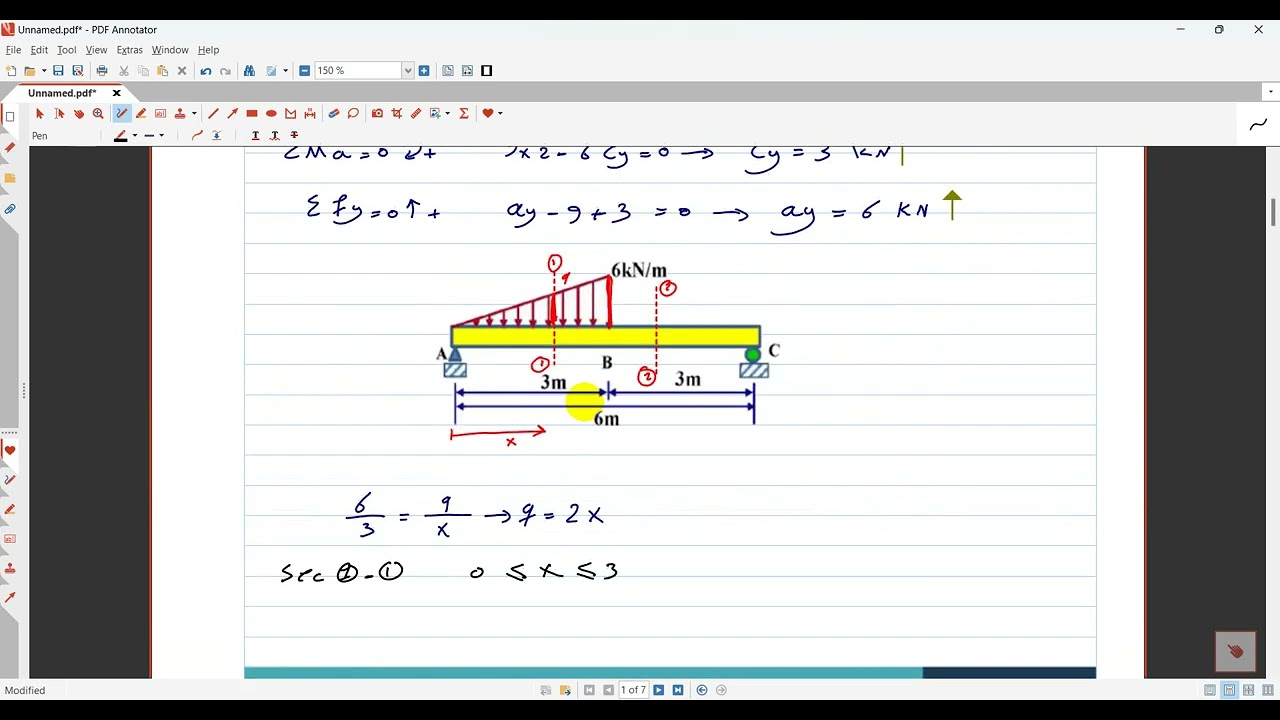 Unnamed.pdf* - PDF Annotator
File Edit Tool View Extras Window Help
150 %
Unnamed.pdf*
Pen
ΣMa=0 + 9x2-6Cy=0 → Cy=3 KN
Σfy=0↑+ ay-9+3=0 → ay=6 KN ↑
① q 6kN/m ②
A ① B ② C
3m 3m
6m
x
6/3 = q/x → q=2x
Sec ①-① 0 ≤ x ≤ 3
Modified 1 of 7